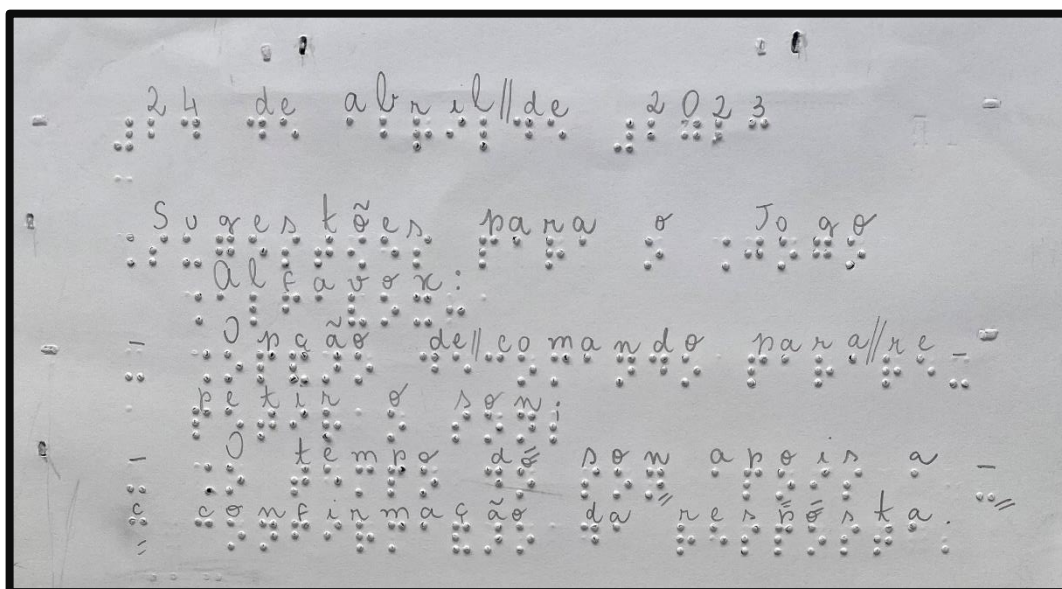 24 de abril//de 2023
Sugestões para o Jogo
Alfavox:
- Opção de//comando para//re-
petir o som;
- O tempo do som apois a -
c confirmação da resposta.